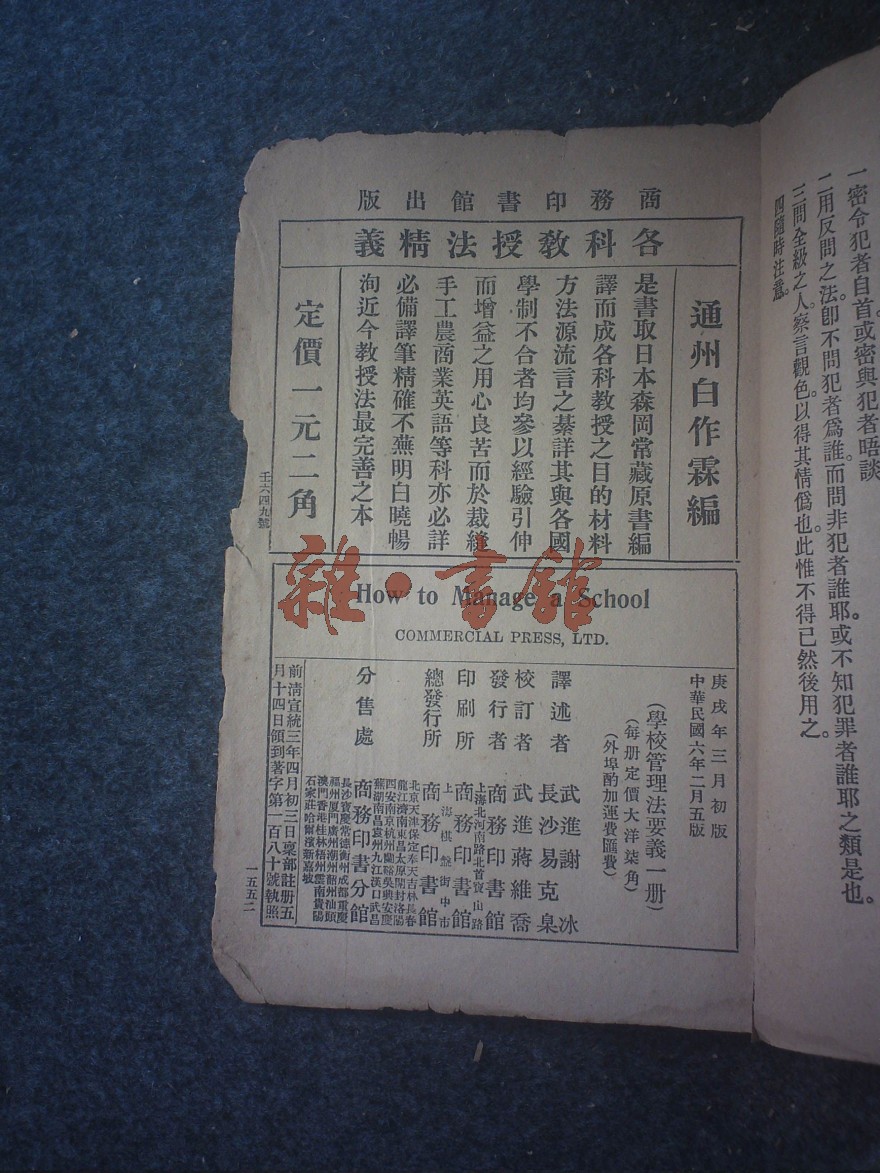 一密令犯者自首或密與犯者晤談。
二用反問之法。卽不問犯者爲誰。而問非犯者誰耶。或不知犯罪者誰耶之類是也。
三問全級之人。察言觀色。以得其情僞也。此惟不得已然後用之。
四隨時注意。
商務印書館出版
各科敎授法精義
通州白作霖編
是書取日本森岡常藏原書編
譯而成各科敎授之目的材料
方法源流言之綦詳其與各國
學制不合者均參以經驗引伸
而增益之用心良苦而於裁縫
手工農商業英語等科亦必詳
必備譯筆精確不蕪明白曉暢
洵近今敎授法最完善之本
定價一元二角
壬六四九號
雜·書館
How to Manage a School
COMMERCIAL PRESS, LTD.
庚戌年三月初版
中華民國六年二月五版
(學校管理法要義一册)
(每册定價大洋柒角)
(外埠酌加運費匯費)
譯述者 武進謝冰 長沙易克臬
校訂者 武進蔣維喬
發行者 商務印書館
印刷所 上海北河南路北首寶山路 商務印書館
總發行所 上海棋盤街中市 商務印書館
分售處 商務印書分館
北京天津保定奉天吉林長春
龍江濟南東昌太原開封洛陽
西安南京杭州蘭谿吳興安慶
蕪湖南昌袁州九江漢口武昌
長沙寶慶常德衡州成都重慶
福州廈門廣州潮州韶州汕頭
澳門香港桂林梧州雲南貴陽
石家莊哈爾濱新嘉坡
前清宣統三年四月初三日稟部註册五
月十四日領到著字第一百八十號執照
一五五二